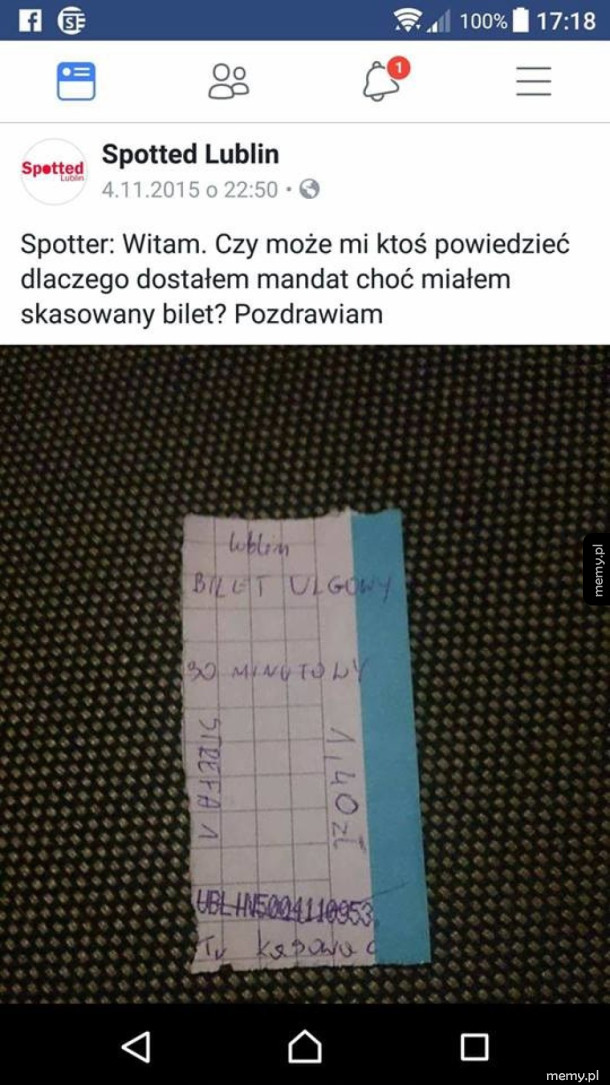 100% 17:18
1
Spotted Lublin
Spotted Lublin
4.11.2015 o 22:50 •
Spotter: Witam. Czy może mi ktoś powiedzieć
dlaczego dostałem mandat choć miałem
skasowany bilet? Pozdrawiam
lublin
BILET ULGOWY
30 MINUTOWY
STREFA 1
1,40 zł
UBLIN5004110953
Tu kasować
memy.pl
memy.pl